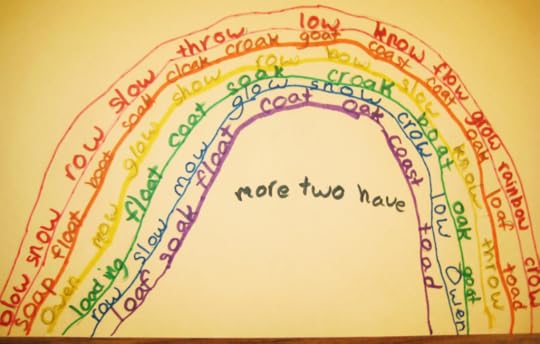 blow snow row slow throw low know flow glow rainbow crow
soap float boat soak cloak croak goat coast coat oak loaf toad
Owen mow glow show row bow slow know throw
loading float coat soak croak boat oak goat
row slow mow glow snow crow low Owen
loaf soak float coat oak coast toad
more two have